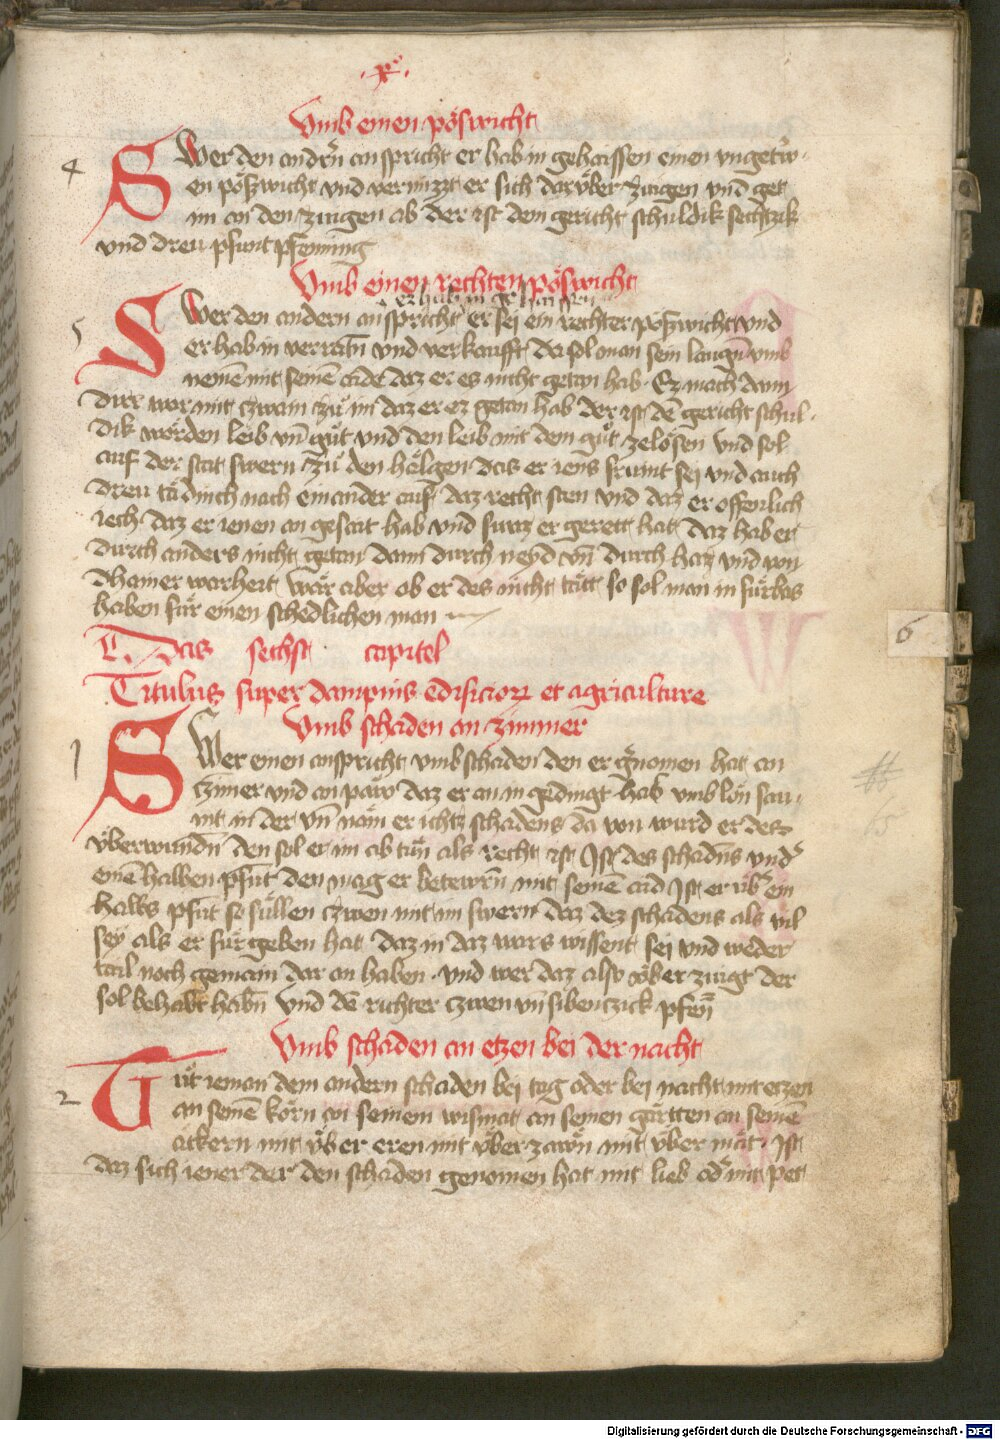 .x.
Vmb einen pöswicht
4
SWer den andrn an spricht er hab in gehaissen einen vngetrw
en pößwicht vnd vermizzt er sich darüber zwgen vnd get
im an den zwgen ab der ist dem gericht schuldik sechtzik
vnd dreu pfunt pfenning
Vmb einen rechten pöswicht
er hab in gehaissen
5
SWer den andern an spricht er sei ein rechter pößwicht vnd
er hab in verratn vnd verkaufft da sol man sein laugn vmb
nemē mit seinē aide daz er es nicht getan hab. Ez mach dann
dirr war mit czwain czu im daz er ez getan hab der ist dē gericht schul
dik worden leib vn̄ gůt vnd den leib mit dem gůt zelösen vnd sol
auf der stat swern zů den hėligen das er iens frumt sei vnd auch
dreu tädinch nach ein ander auf daz recht sten vnd daz er offenlich
iech daz er ienen an gesait hab vnd swaz er gerett hat daz hab er
durch anders nicht getan dann durch neyd vn̄ durch haz vnd von
dhainer warheit wär aber ob er des nicht tätt so sol man in fürbas
haben für einen schedlichen man
Das sechst capitel
Titulus super dampnis edificior et agriculture
Vmb schaden an zimmer
6
1
SWer einen anspricht vmb schaden den er gnomen hat an
czimer vnd an paw daz er an in gedingt hab vmb lön sau
mt in der vn̄ näm er ichtz schadens da von wurd er des
vberwundn̄ den sol er im ab tun als recht ist Ist des schadn̄s vnd
einē halben pfūt den mag er betewrn mit seinē aid Ist er üb ein
halbs pfūt so süllen czwen mit im swern daz dez schadens als vil
sey als er für geben hat daz in daz wars wissent sei vnd weder
tail noch gemain dar an haben. vnd wer daz also vber zwgt der
sol behabt habn̄ vnd dē richter czwen vn̄ sibenczick pfen̄
65
Vmb schaden an etzen bei der nacht
2
Tůt ieman dem andern schaden bei tag oder bei nacht mit etzen
an seinē korn an seinem wismat an seinen gärtten an seinē
äckern mit vber eren mit vber zäwn mit vber mät. Ist
daz sich iener der den schaden genomen hat mit lieb od mit pet
Digitalisierung gefördert durch die Deutsche Forschungsgemeinschaft - DFG